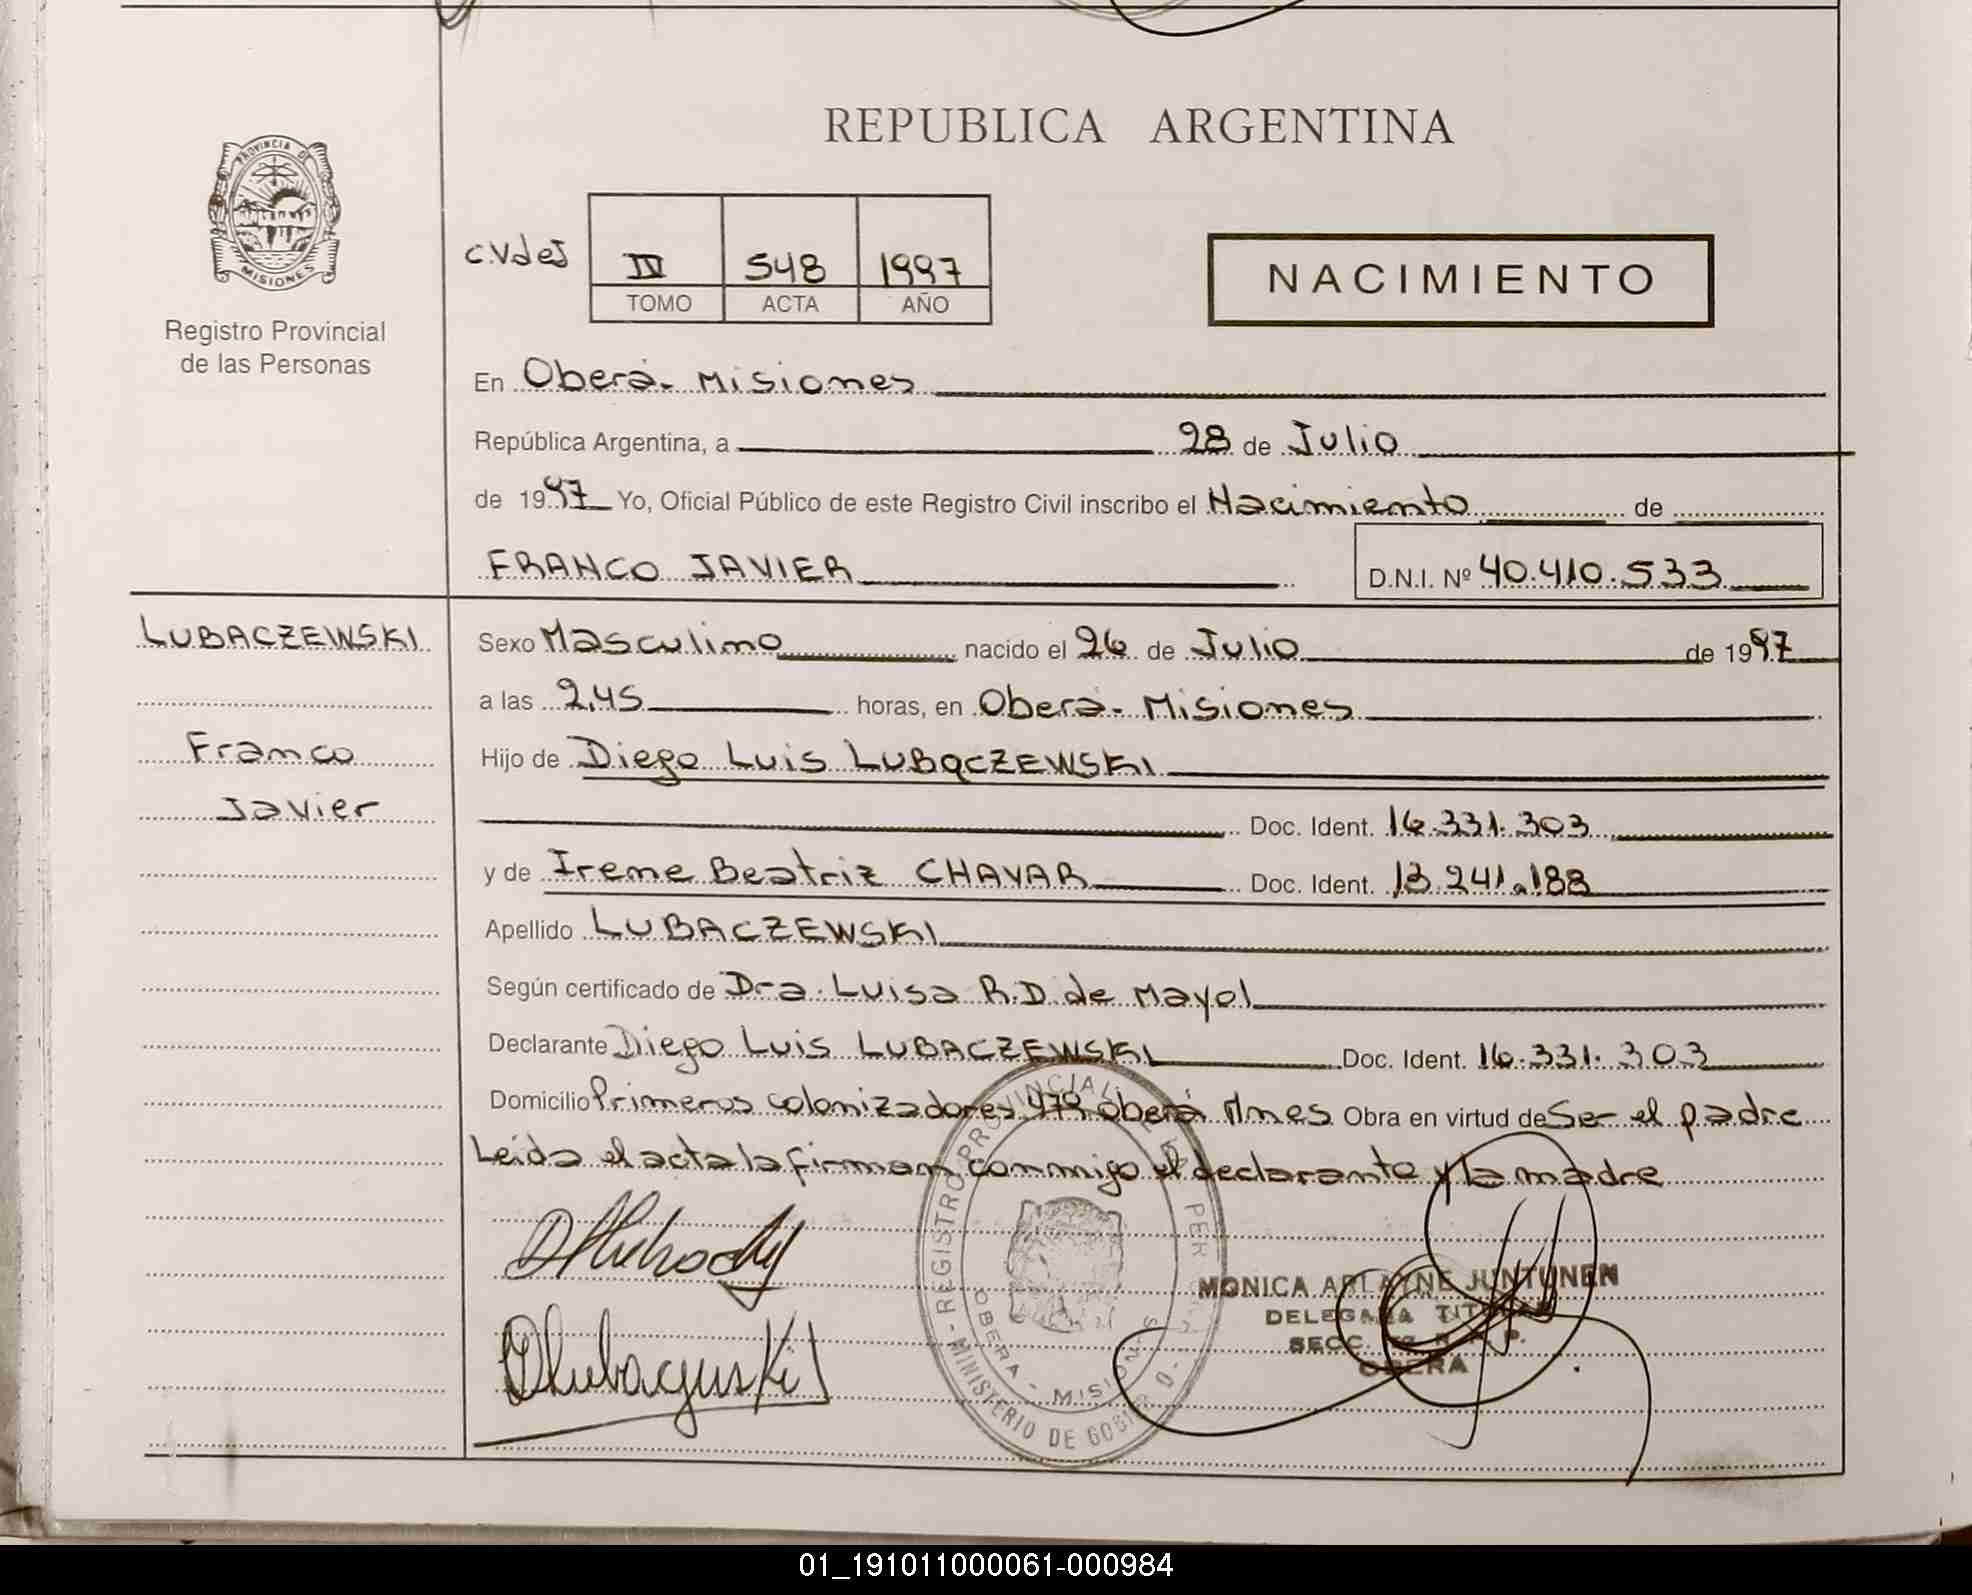 REPUBLICA ARGENTINA
PROVINCIA DE
MISIONES
Registro Provincial
de las Personas
c.vdeJ
IV 548 1997
TOMO ACTA AÑO
NACIMIENTO
En Oberá - Misiones
República Argentina, a 28 de Julio
de 1997 Yo, Oficial Público de este Registro Civil inscribo el Nacimiento de
FRANCO JAVIER D.N.I. Nº 40.410.533
LUBACZEWSKI
Franco
Javier
Sexo Masculino nacido el 26 de Julio de 1997
a las 2,45 horas, en Oberá - Misiones
Hijo de Diego Luis LUBACZEWSKI
Doc. Ident. 16.331.303
y de Irene Beatriz CHAVAR Doc. Ident. 13.241.188
Apellido LUBACZEWSKI
Según certificado de Dra. Luisa R.D. de Mayol
Declarante Diego Luis LUBACZEWSKI Doc. Ident. 16.331.303
Domicilio Primeros colonizadores 479 oberá Mnes Obra en virtud de Ser el padre
Leída el acta la firman conmigo el declarante y la madre
REGISTRO PROVINCIAL DE PER
MINISTERIO DE GOBIERNO
OBERA - MISIONES
MONICA ARLAYNE JUNTUNEN
DELEGADA TITULAR
SECC. R. P.
OBERA
01_191011000061-000984